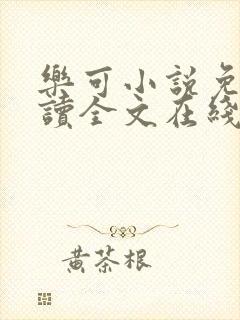 樂可小說免
讀全文在綫
黄茶根